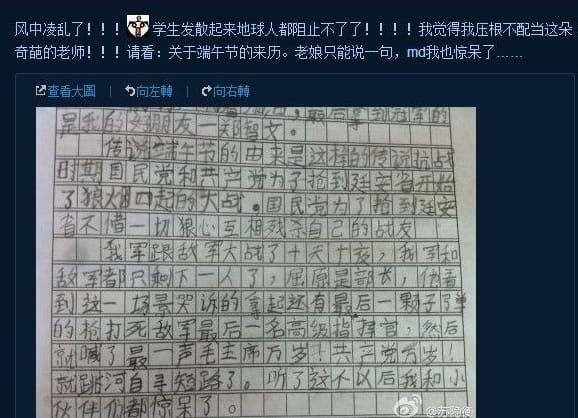 风中凌乱了！！！学生发散起来地球人都阻止不了了！！！！我觉得我压根不配当这朵
奇葩的老师！！！请看：关于端午节的来历。老娘只能说一句，md我也惊呆了……
查看大圖 | 向左轉 | 向右轉
最后拿到冠军的
是我的好朋友一郑智文。
传说端午节的由来是这样的传说抗战
时期国民党和共产党为了抢到延安省开始
了狼烟四起的大战。国民党为了抢到延安
省不惜一切狠心互相残杀自己的战友
我军跟敌军大战了十天十夜，我军和
敌军都只剩下一人了，屈原是部长，他看
到这一场景哭诉的拿起还有最后一颗子弹
的枪打死敌军最后一名高级指挥官，然后
就喊了最一声毛主席万岁！共产党万岁！
就跳河自手短路了。听了这不以后我和小
伙伴们都惊呆了。